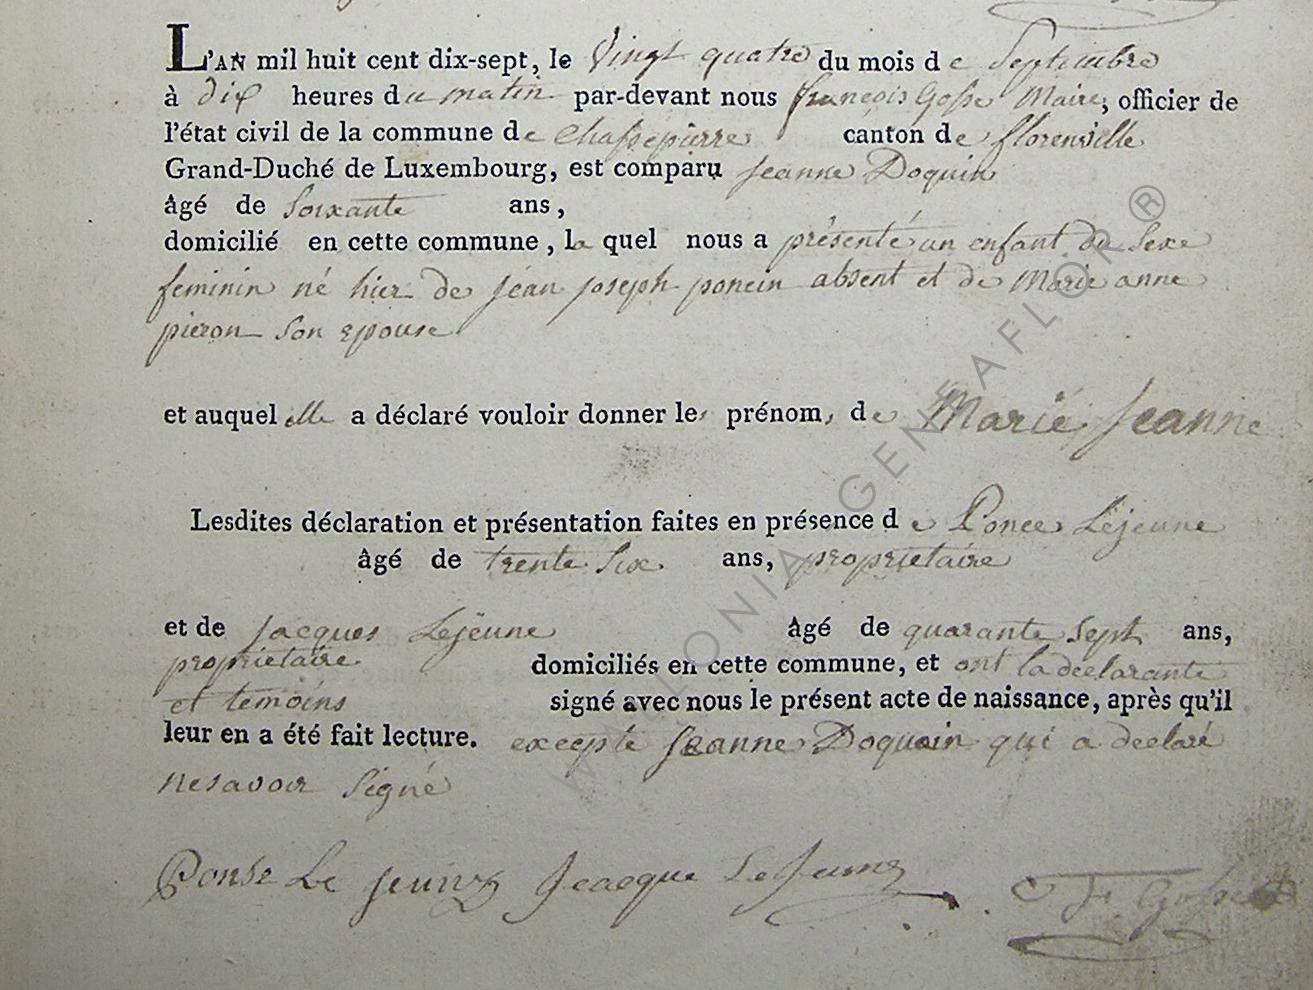 L'AN mil huit cent dix-sept, le Vingt quatre du mois de Septembre
à dix heures du matin par-devant nous françois Gosse Maire, officier de
l'état civil de la commune de Chassepierre canton de florenville
Grand-Duché de Luxembourg, est comparu jeanne Doquin
âgé de Soixante ans,
domicilié en cette commune, la quel nous a présenté un enfant du Sexe
feminin né hier de jean joseph poncin absent et de Marie anne
pieron Son epouse
et auquel elle a déclaré vouloir donner les prénoms de Marië Jeanne
Lesdites déclaration et présentation faites en présence de Ponce Lëjeune
âgé de trente Six ans, proprietaire
et de jacques Lejëune âgé de quarante Sept ans,
proprietaire domiciliés en cette commune, et ont la déclarante
et temoins signé avec nous le présent acte de naissance, après qu'il
leur en a été fait lecture. excepte jeanne Doquin qui a declaré
ne savoir Signé
Ponse Le jeune Jeacque Le Jeune F Gosse
WALLONIA GENEAFLOR ®